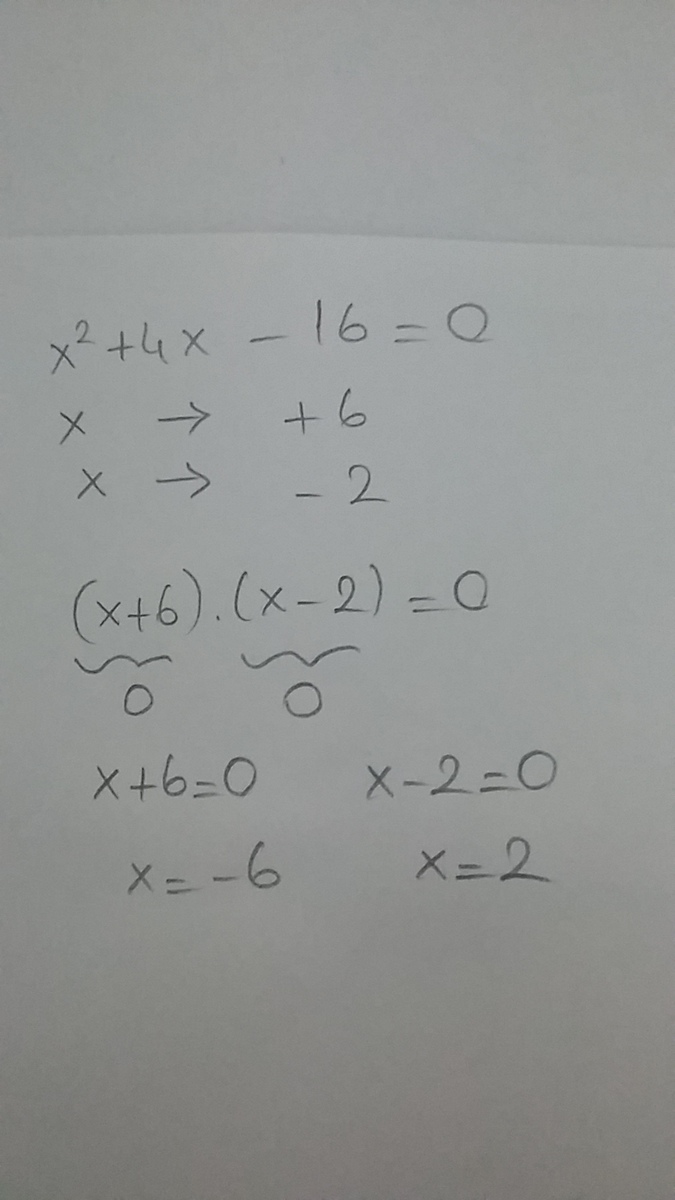 x² + 4x - 16 = 0
x → + 6
x → - 2
(x+6).(x-2) = 0
0 0
x+6=0 x-2=0
x=-6 x=2